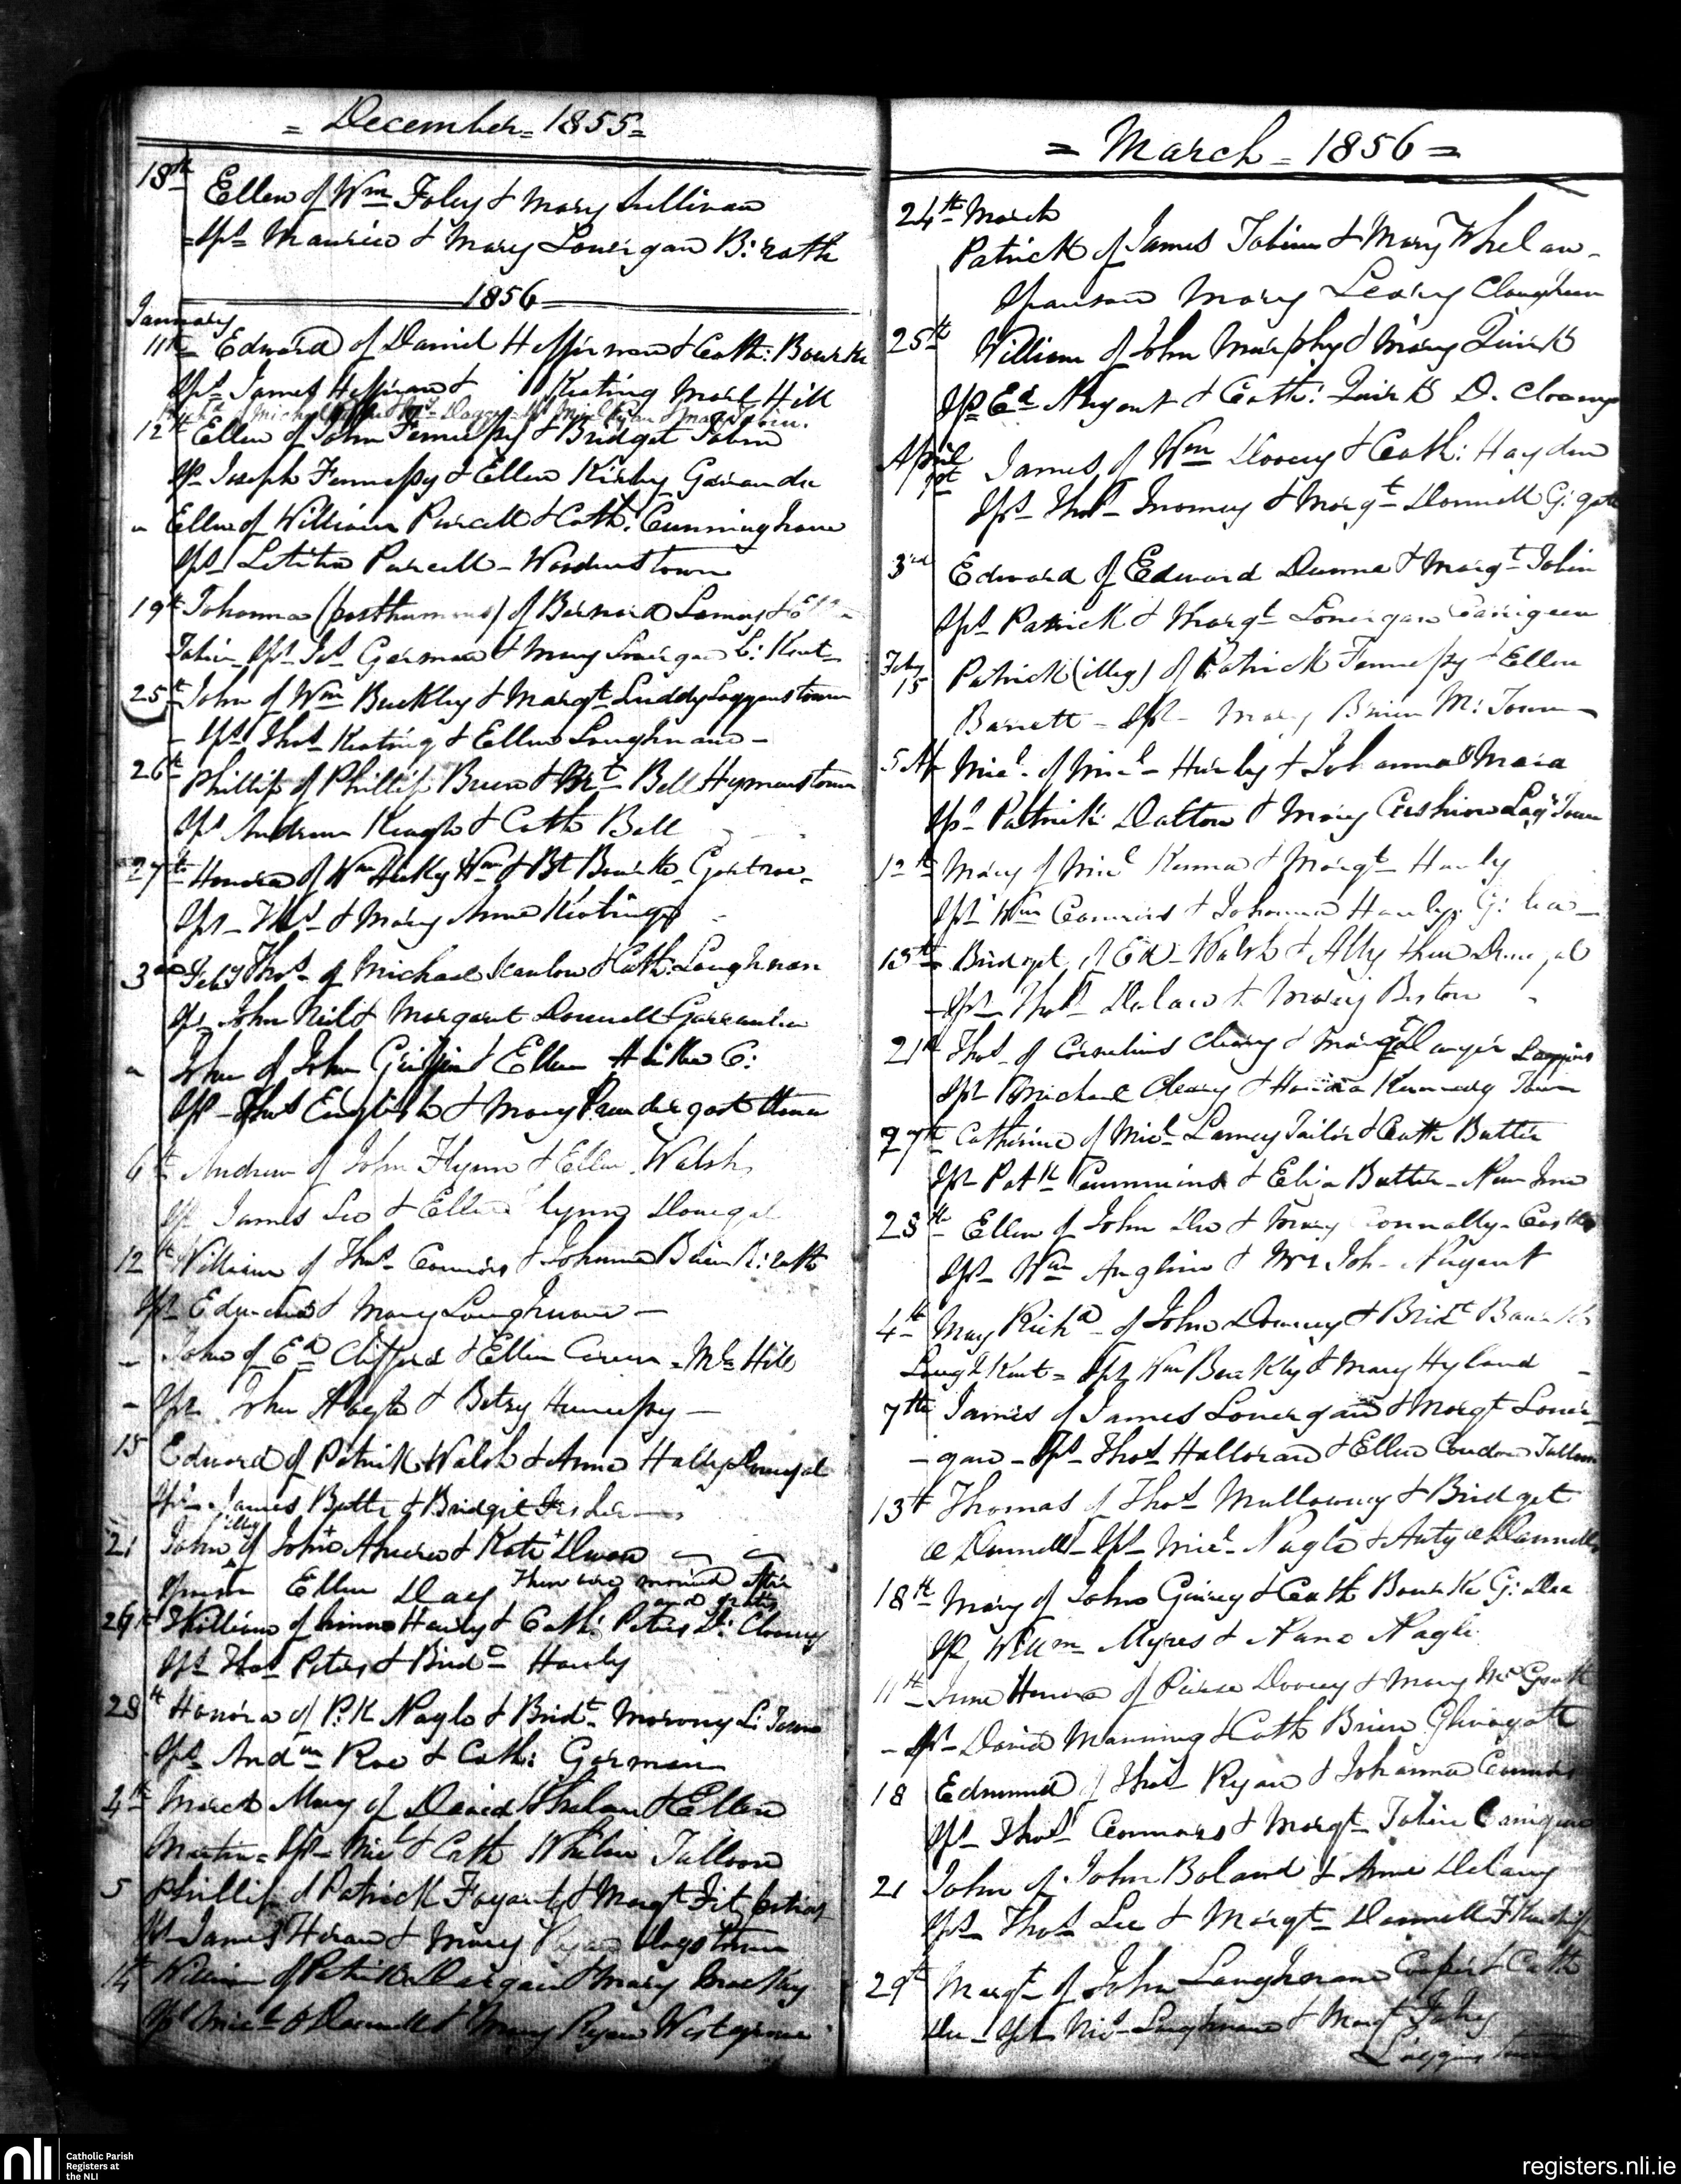 = December = 1855 =
18th Ellen of Wm Foley & Mary Sullivan
= Sps Maurice & Mary Lonergan B: rath
1856
January
11th Edward of Daniel Heffernan & Cath: Bourke
Sps James Heffernan & Keating Marl Hill
12th Ellen of John Fennessy & Bridget Tobin
Sps Joseph Fennessy & Ellen Kirby
Ellen of William Purcell & Cath: Cunninghame
Sps Letitia Purcell - Woodenstown
19th Johanna (posthumous) of Bernard &
Tobin Sps Jas Gorman & Mary Lonergan
25th John of Wm Buckley & Margt Luddy Loggenstown
- Sps Thos Keating & Ellen Loughnane -
26th Phillip of Phillip Brien & Bt Bell Hymenstown
Sps Andrew Keogh & Cath Bell
27th Honora of Wm & Bt Bourke
Sps - Thos & Mary Anne Keating
3rd Feby Thos of Michael Scanlon & Cath: Loughnan
Sps John Neil & Margaret Donnell
John of John Griffin & Ellen
Sps - Thos English & Mary Prendergast
6th Andrew of John Flynn & Ellen Walsh
Sps James Leo & Ellen Flynn Donegal
12th William of Thos Connors & Johanna Brien
Sps Edmond & Mary Loughnane -
- John of Ed Clifford & Ellen - Ml Hill
- Sps John & Betsy Hennessy -
15 Edward of Patrick Walsh & Anne Donegal
Sps James Butler & Bridget
21 John illeg of John & Kate Dwan
Sponsor Ellen Day These were married after
and gratis
26th William of Hanly & Cath: Peters D: Cloney
Sps Thos Peters & Bridt Hanly
28th Honora of P.k Nagle & Bridt Morony L: Town
Sps Andw Roe & Cath: Gorman
4th March Mary of David Whelan & Ellen
Martin = Sps - Micl & Cath Whelan Tulloon
5 Phillip of Patrick Fogarty & Margt
Sps James & Mary Ryan
14 William of Patrick & Mary
Sps Micl O Donnell & Mary Ryan Westgrove
= March = 1856 =
24th March
Patrick of James Tobin & Mary Whelan -
Sponsor Mary Leary Clougheen
25th William of John Murphy & Mary Quirk
Sps Ed Nugent & Cath: Quirk D. Cloney
April
1st James of Wm Dooney & Cath: Hayden
Sps Thos & Margt Donnell G: gate
3rd Edward of Edward Dunne & Margt Tobin
Sps Patrick & Margt Lonergan Carrigeen
Feby
15 Patrick (illeg) of Patrick Fennessy & Ellen
Barrett - Sps - Mary Brien M: Town -
5 Ap Micl of Micl Hurley & Johanna O Mara
Sps Patrick Dalton & Mary Cushion Lag: Town
12th Mary of Micl Kenna & Margt Hanly
Sps Wm Connors & Johanna Hanly
15th Bridget of Ed Walsh & Ally
- Sps Thos & Mary Beston
21st Thos of Cornelius Cleary & Margt Loggins
Sps Michael Cleary & Honora Kennedy Town
27th Catherine of Micl Lamey Tailor & Cath Butler
Sps Patk Cummins & Eliza Butler - New Inn
28th Ellen of John & Mary Connolly - Castle
Sps - Wm Anglim & Mrs Joh. Nugent
4th May Richd of John Downey & Bridt Bourke
Lough Kent = Sps Wm Buckley & Mary Hyland -
7th James of James Lonergan & Margt Loner-
- gan - Sps Thos Halloran & Ellen Condon Tulloon
13th Thomas of Thos Mullowney & Bridget
O Donnell - Sps Micl Nagle & Anty O Donnell
18th Mary of John Guiney & Cath Bourke
Sps Willm Myres & Nano Nagle
11th June Honora of Pierse Dooney & Mary McGrath
- Sps David Manning & Cath Brien
18 Edmund of Thos Ryan & Johanna Connors
Sps Thos Connors & Margt Tobin Carrigeen
21 John of John Boland & Anne Delany
Sps Thos Lee & Margt Donnell
29th Margt of John Loughnane Cooper & Cath
Sps Micl Loughnane & Margt
Loggins town
nli
Catholic Parish
Registers at
the NLI
registers.nli.ie